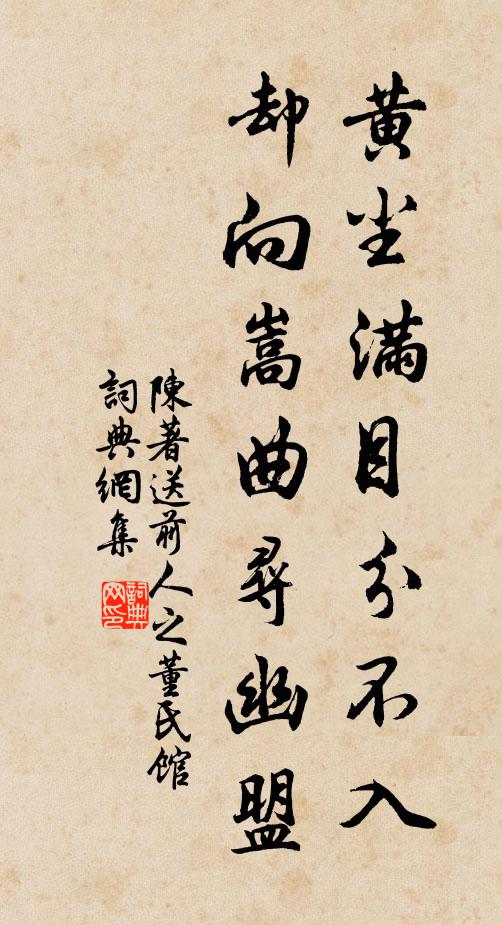 黄尘满目分不入
却向嵩曲尋幽盟
陳著送前人之董氏館
詞典網集
詞典网印